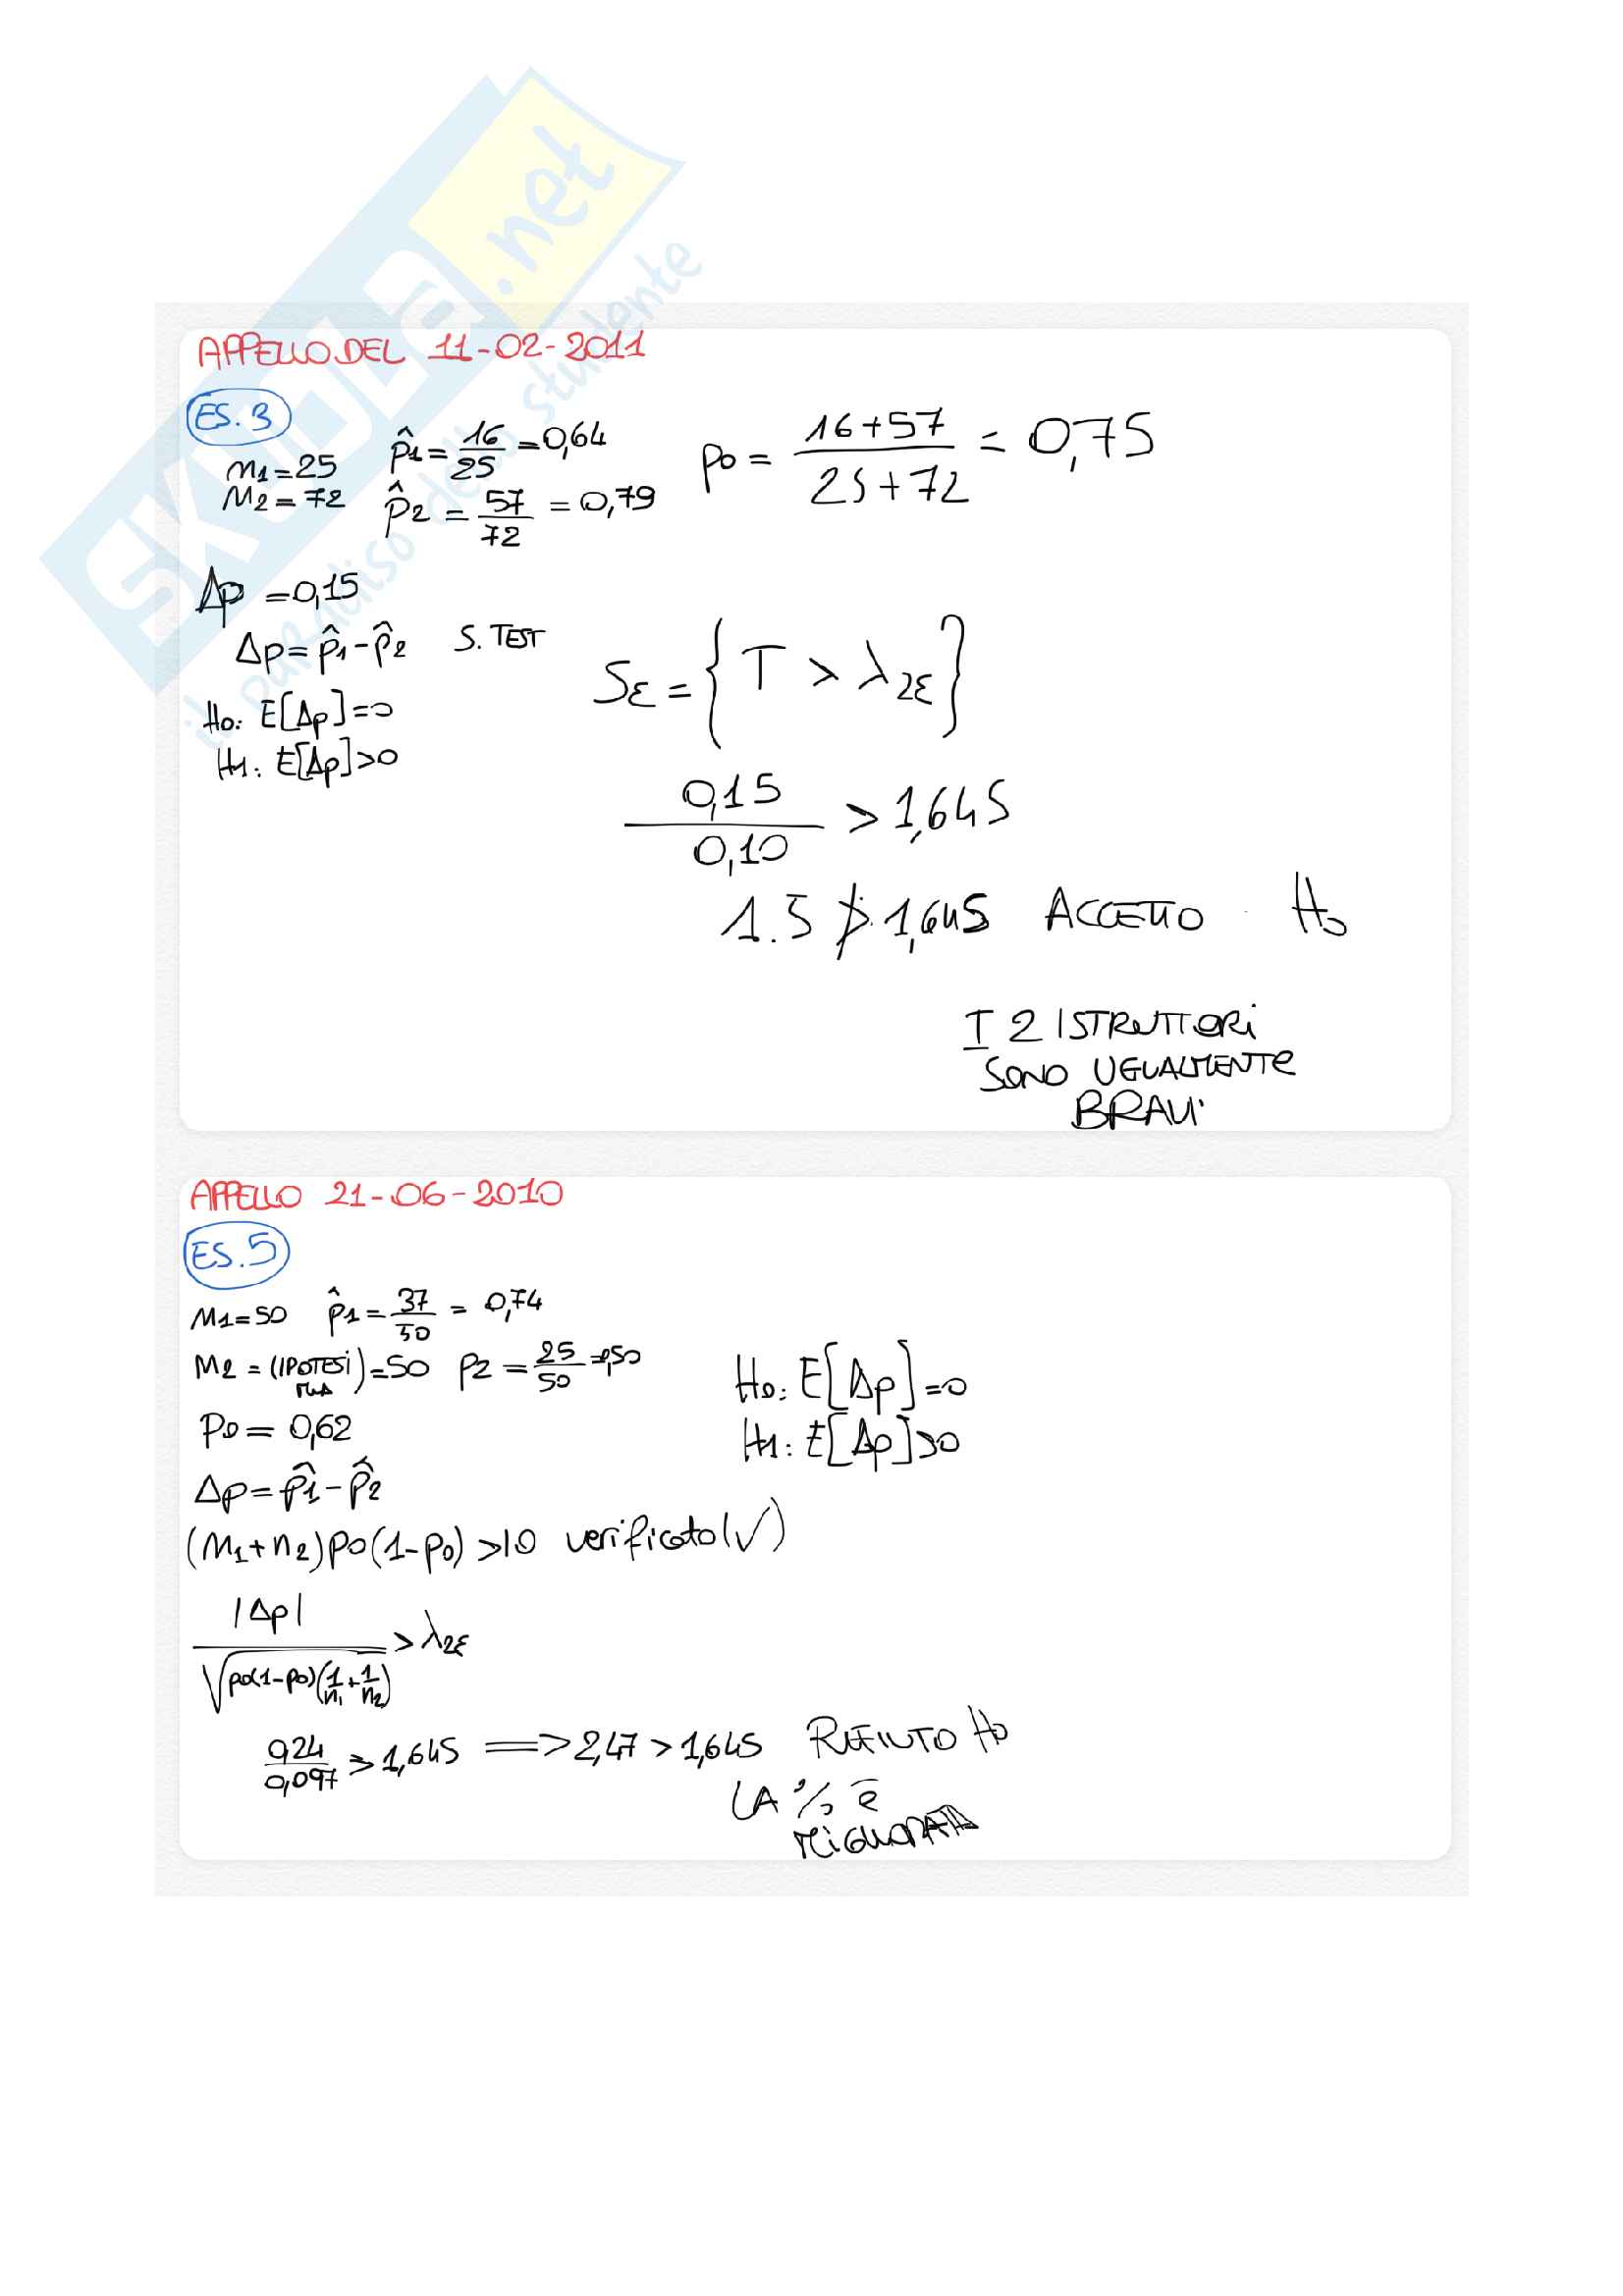 SKUOLA.net
il paradiso dello studente
APPELLO DEL 11-02-2011
ES. 3
n1=25
n2=72
p̂1=16/25=0,64
p̂2=57/72=0,79
p0=(16+57)/(25+72)=0,75
Δp=0,15
Δp=p̂1-p̂2 S. TEST
H0: E[Δp]=0
H1: E[Δp]>0
Sε={T>λ2ε}
0,15/0,10>1,645
1.5≯1,645 ACCETTO H0
I 2 ISTRUTTORI
SONO UGUALMENTE
BRAVI
APPELLO 21-06-2010
ES. 5
n1=50 p̂1=37/50=0,74
n2=(IPOTESI MIA)=50 p2=25/50=0,50
P0=0,62
H0: E[Δp]=0
H1: E[Δp]>0
Δp=p̂1-p̂2
(n1+n2)p0(1-p0)>10 verificato(√)
|Δp|/√(p0(1-p0)(1/n1+1/n2))>λ2ε
0,24/0,097>1,645 ⟹ 2,47>1,645 RIFIUTO H0
LA % è
MIGLIORATA